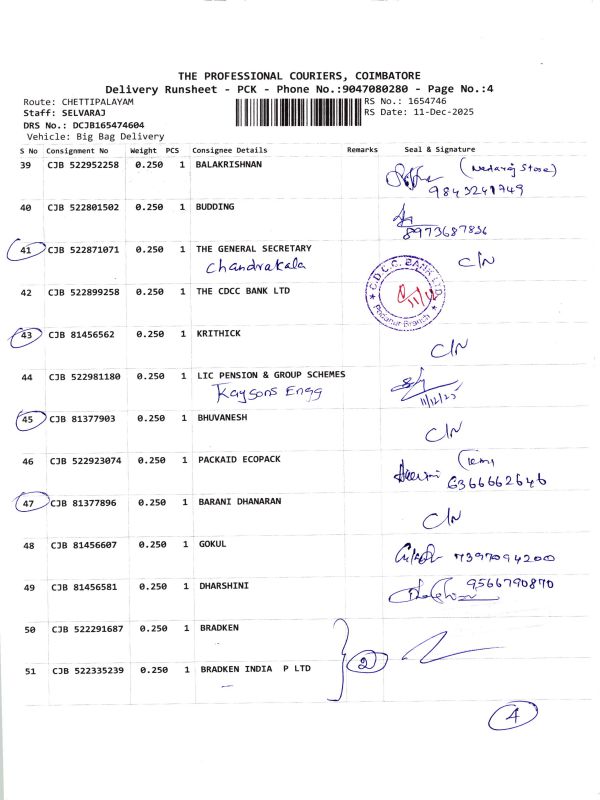 THE PROFESSIONAL COURIERS, COIMBATORE
Delivery Runsheet - PCK - Phone No.:9047080280 - Page No.:4
Route: CHETTIPALAYAM RS No.: 1654746
Staff: SELVARAJ RS Date: 11-Dec-2025
DRS No.: DCJB165474604
Vehicle: Big Bag Delivery
S No Consignment No Weight PCS Consignee Details Remarks Seal & Signature
39 CJB 522952258 0.250 1 BALAKRISHNAN
9843241949
40 CJB 522801502 0.250 1 BUDDING
8973687836
41 CJB 522871071 0.250 1 THE GENERAL SECRETARY C/N
Chandrakala
42 CJB 522899258 0.250 1 THE CDCC BANK LTD
C.D.C.C. BANK LTD.
Podanur Branch
43 CJB 81456562 0.250 1 KRITHICK C/N
44 CJB 522981180 0.250 1 LIC PENSION & GROUP SCHEMES
Kaysons Engg 11/12/25
45 CJB 81377903 0.250 1 BHUVANESH C/N
46 CJB 522923074 0.250 1 PACKAID ECOPACK
6366662646
47 CJB 81377896 0.250 1 BARANI DHANARAN C/N
48 CJB 81456607 0.250 1 GOKUL 7397094200
49 CJB 81456581 0.250 1 DHARSHINI 9566790870
50 CJB 522291687 0.250 1 BRADKEN
2
51 CJB 522335239 0.250 1 BRADKEN INDIA P LTD
4